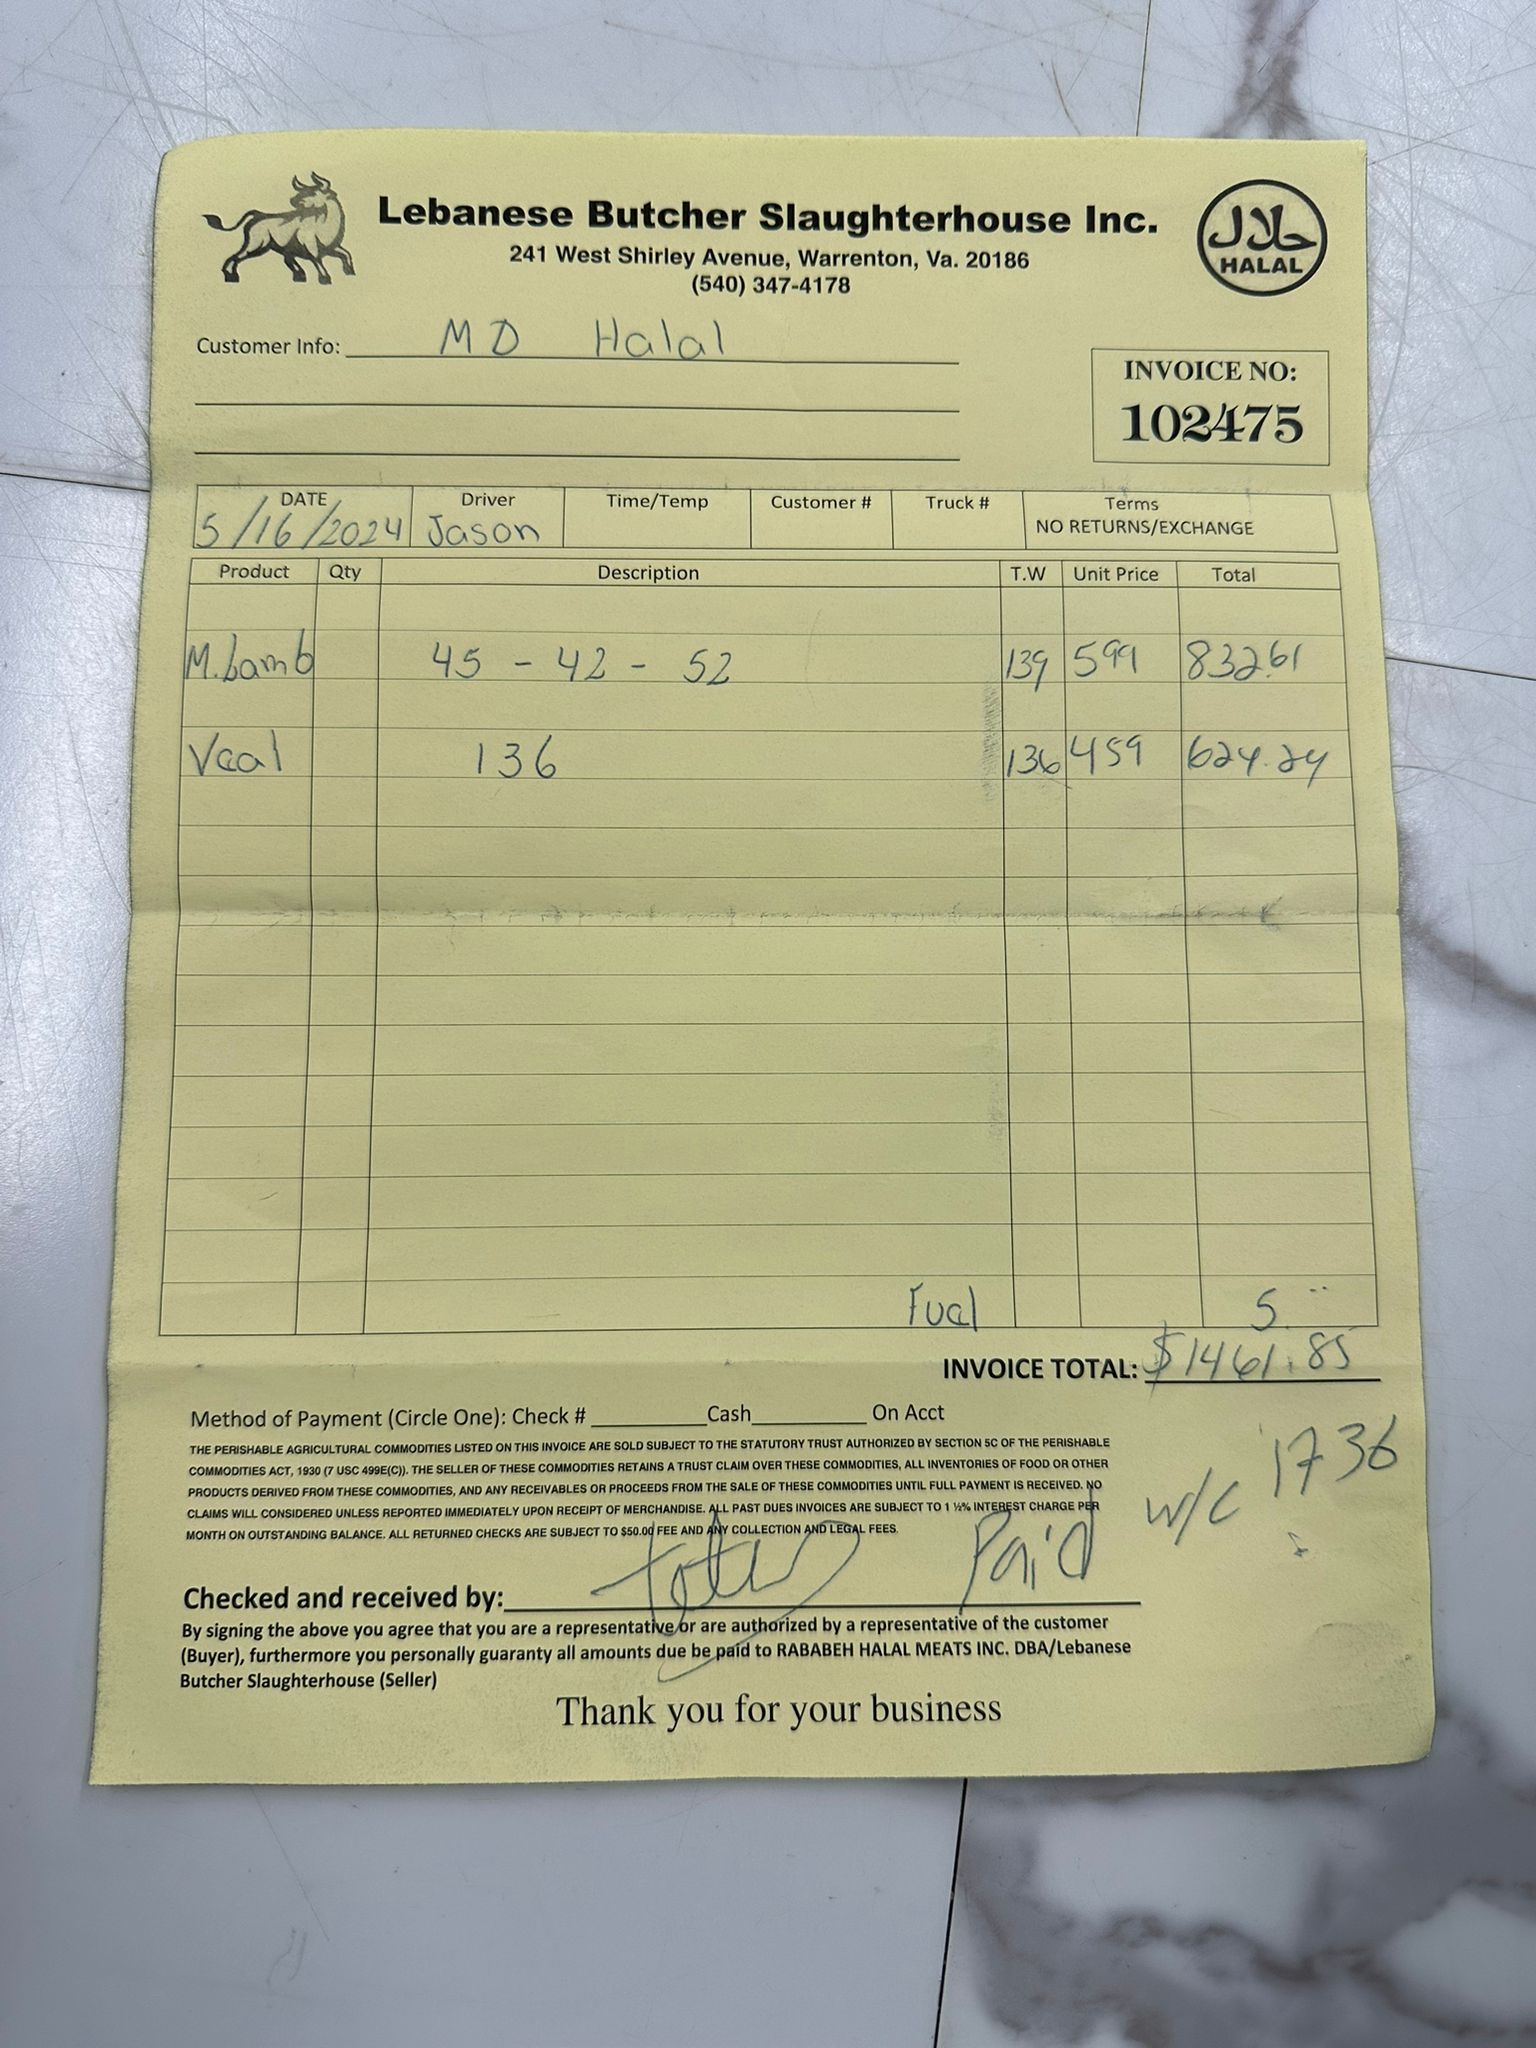 Lebanese Butcher Slaughterhouse Inc.
241 West Shirley Avenue, Warrenton, Va. 20186
(540) 347-4178
حلال
HALAL
Customer Info: MD Halal
INVOICE NO:
102475
DATE Driver Time/Temp Customer # Truck # Terms
5/16/2024 Jason NO RETURNS/EXCHANGE
Product Qty Description T.W Unit Price Total
M.Lamb 45 - 42 - 52 139 599 832.61
Veal 136 136 459 624.24
Fuel 5
INVOICE TOTAL: $1461.85
Method of Payment (Circle One): Check # Cash On Acct
THE PERISHABLE AGRICULTURAL COMMODITIES LISTED ON THIS INVOICE ARE SOLD SUBJECT TO THE STATUTORY TRUST AUTHORIZED BY SECTION 5C OF THE PERISHABLE
COMMODITIES ACT, 1930 (7 USC 499E(C)). THE SELLER OF THESE COMMODITIES RETAINS A TRUST CLAIM OVER THESE COMMODITIES, ALL INVENTORIES OF FOOD OR OTHER
PRODUCTS DERIVED FROM THESE COMMODITIES, AND ANY RECEIVABLES OR PROCEEDS FROM THE SALE OF THESE COMMODITIES UNTIL FULL PAYMENT IS RECEIVED. NO
CLAIMS WILL CONSIDERED UNLESS REPORTED IMMEDIATELY UPON RECEIPT OF MERCHANDISE. ALL PAST DUES INVOICES ARE SUBJECT TO 1 ½% INTEREST CHARGE PER
MONTH ON OUTSTANDING BALANCE. ALL RETURNED CHECKS ARE SUBJECT TO $50.00 FEE AND ANY COLLECTION AND LEGAL FEES.
Paid w/c 1736
Checked and received by:
By signing the above you agree that you are a representative or are authorized by a representative of the customer
(Buyer), furthermore you personally guaranty all amounts due be paid to RABABEH HALAL MEATS INC. DBA/Lebanese
Butcher Slaughterhouse (Seller)
Thank you for your business